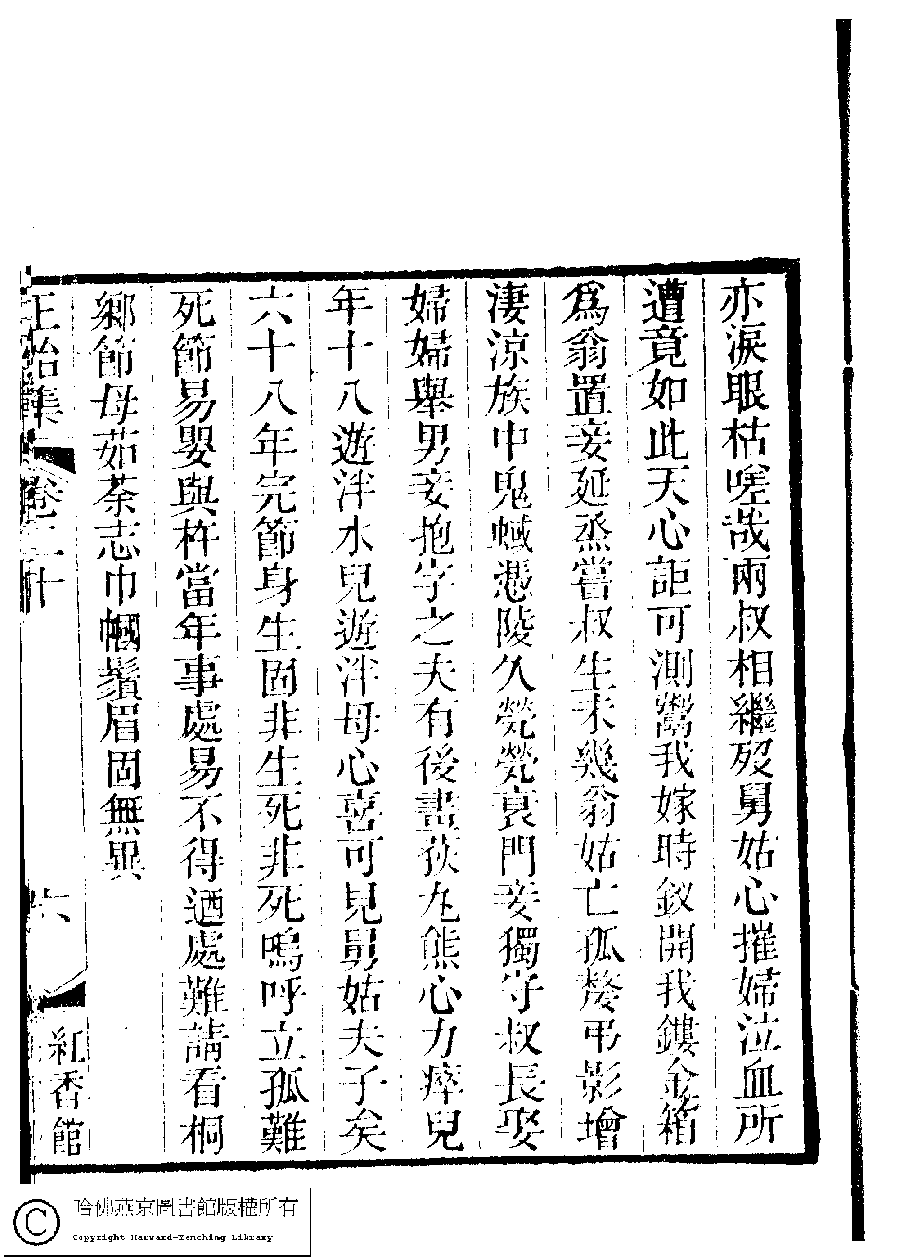 亦淚眼枯嗟哉兩叔相繼歿舅姑心摧婦泣血所
遭竟如此天心詎可測鬻我嫁時釵開我鏤金箱
爲翁置妾延烝嘗叔生未幾翁姑亡孤嫠弔影增
淒涼族中鬼蜮憑陵久煢煢衰門妾獨守叔長娶
婦婦舉男妾抱字之夫有後畫荻丸熊心力瘁兒
年十八遊泮水兒遊泮母心喜可見舅姑夫子矣
六十八年完節身生固非生死非死嗚呼立孤難
死節易嬰與杵當年事處易不得迺處難請看桐
鄉節母茹荼志巾幗鬚眉固無異
正始集
卷二十
六
紅香館
哈佛燕京圖書館版權所有
Copyright Harvard-Yenching Library